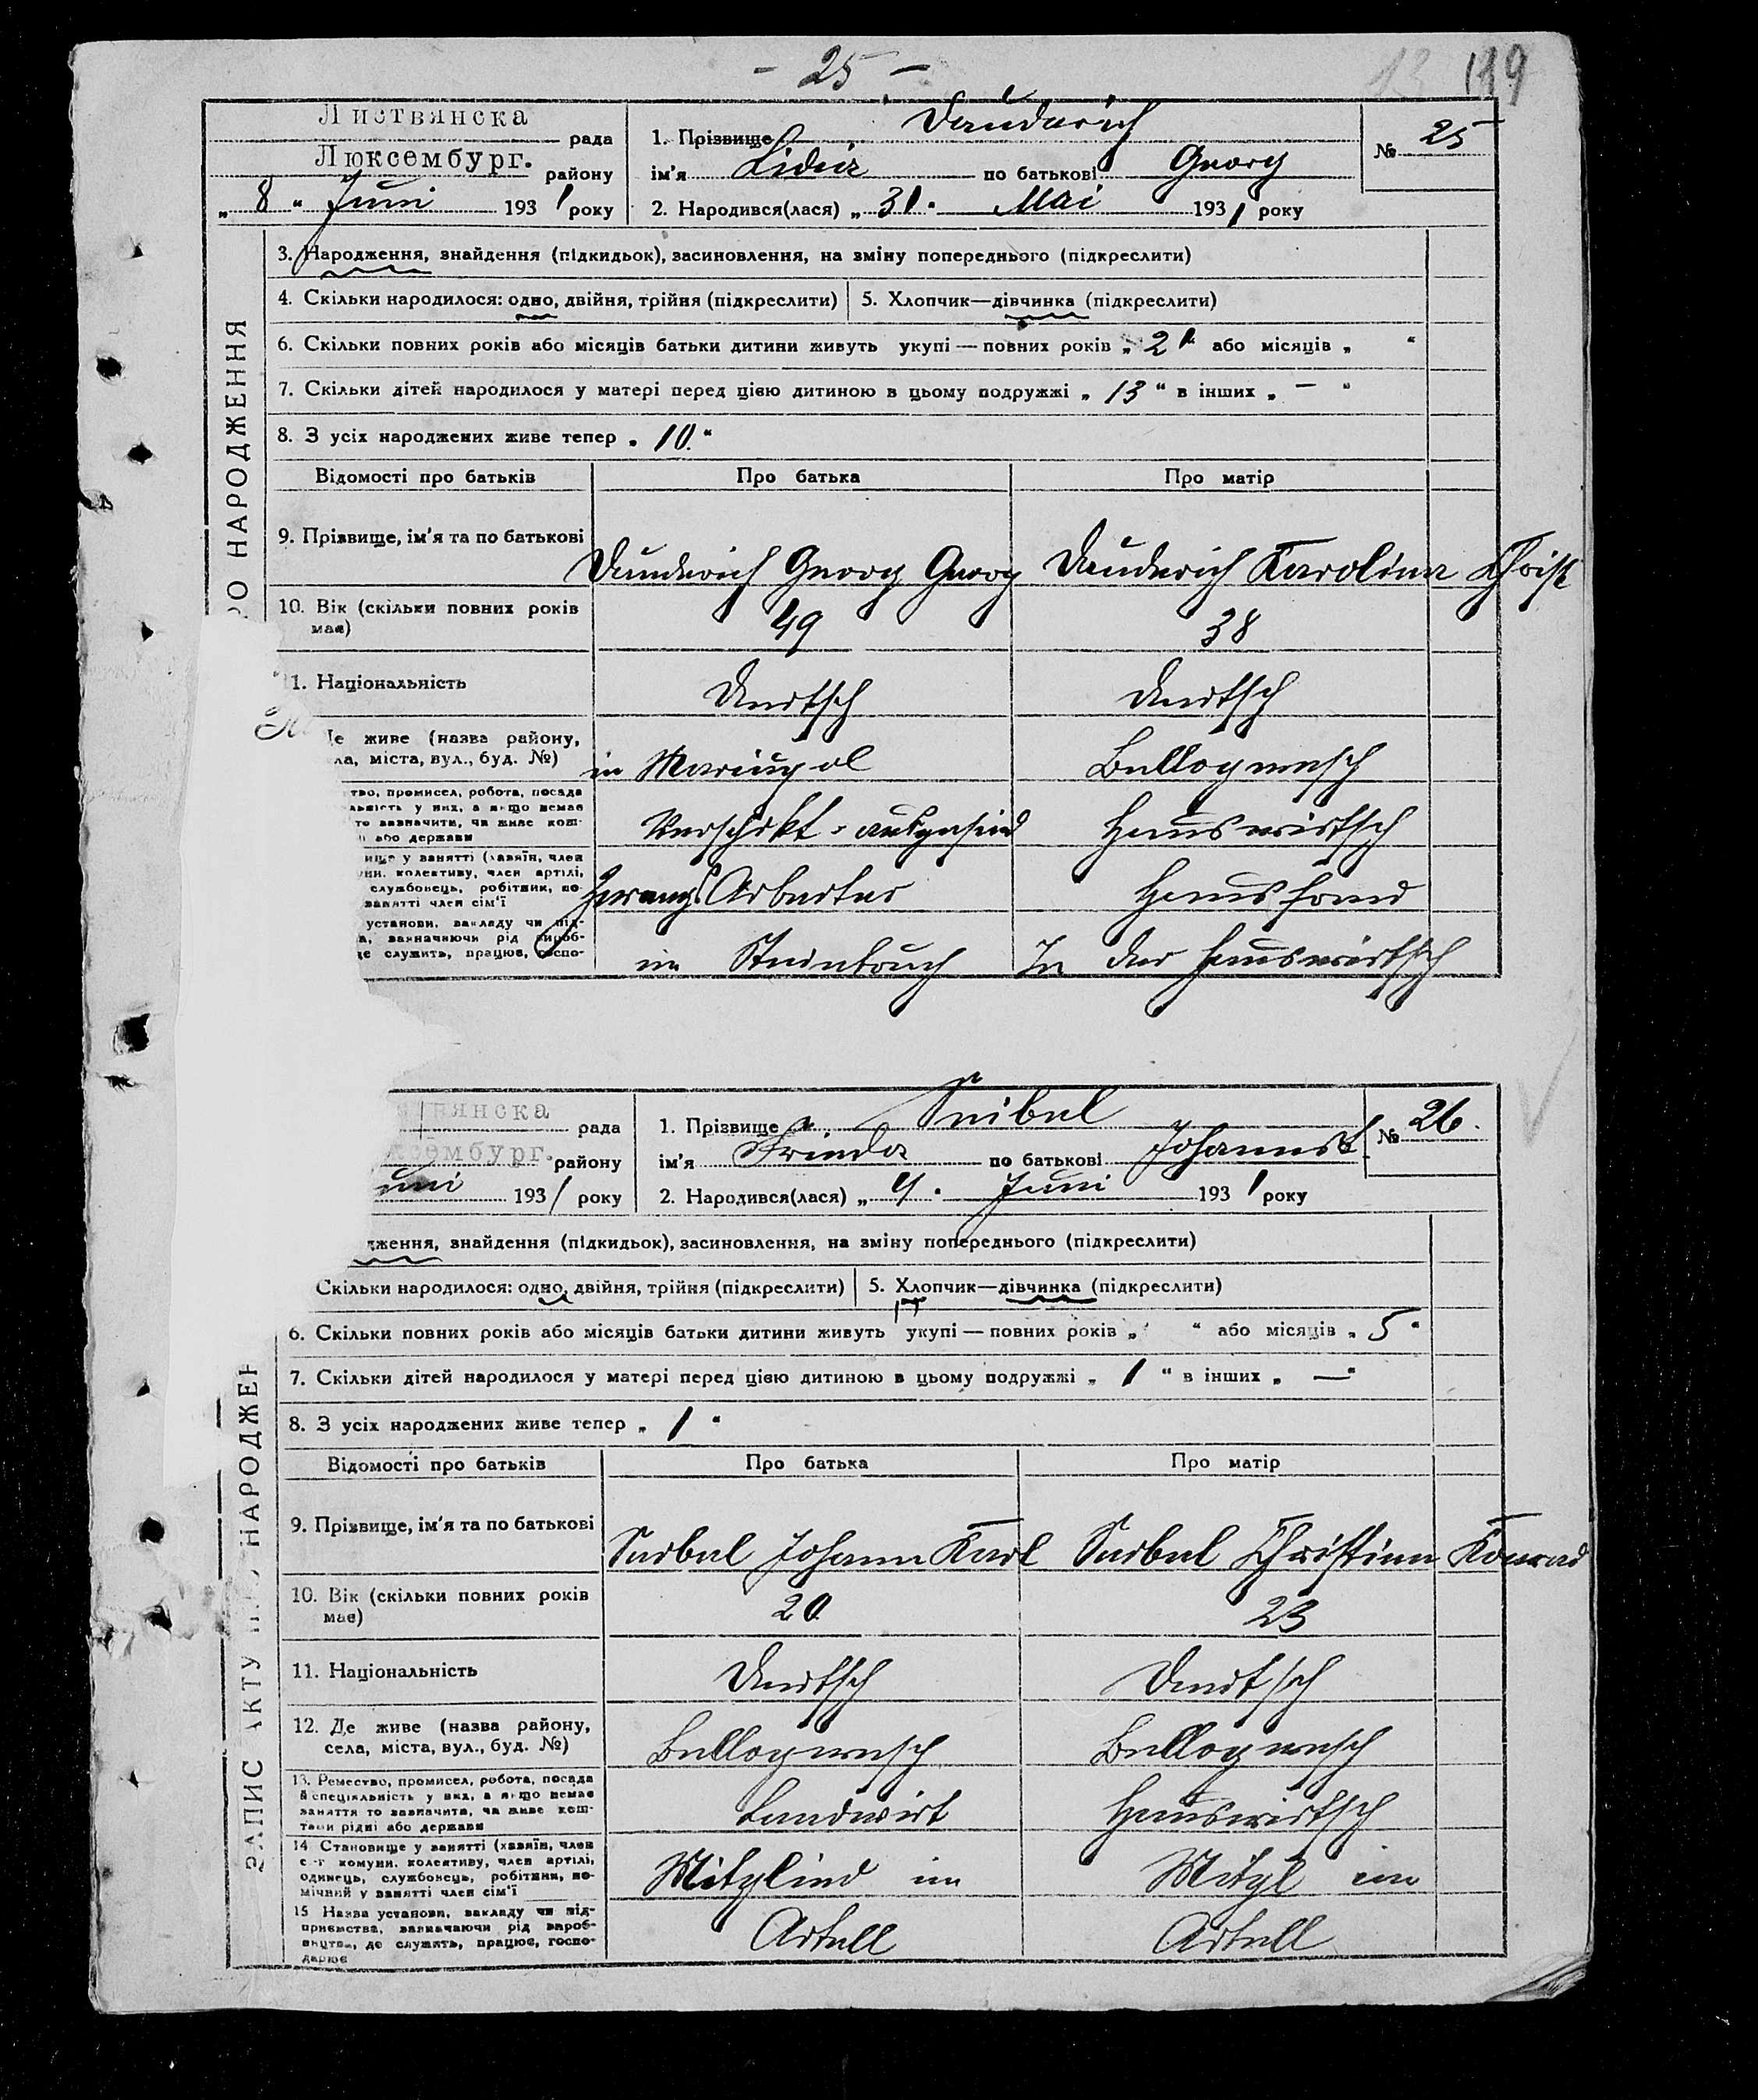 - 25 -
199
Листвянска рада
Люксембург. району
„ 8 “ Juni 1931 року
1. Прізвище Däuderich
ім'я Lidia по батькові Georg
№ 25
2. Народився(лася) „ 31 “ Mai 1931 року
3. Народження, знайдення (підкидьок), засиновлення, на зміну попереднього (підкреслити)
4. Скільки народилося: одно, двійня, трійня (підкреслити) 5. Хлопчик—дівчинка (підкреслити)
6. Скільки повних років або місяців батьки дитини живуть укупі — повних років „ 21 “ або місяців „ “
7. Скільки дітей народилося у матері перед цією дитиною в цьому подружжі „ 13 “ в інших „ — “
8. З усіх народжених живе тепер „ 10 “
РО НАРОДЖЕННЯ
Відомості про батьків Про батька Про матір
9. Прізвище, ім'я та по батькові Däuderich Georg Georg Däuderich Karolina Christ
10. Вік (скільки повних років має) 49 38
1. Національність Deutsch Deutsch
Де живе (назва району, ла, міста, вул., буд. №) in Mariupol
тво, промисел, робота, посада
льність у них, а якщо немає
то зазначити, чи живе кош-
або держави
Hauswirtsch
ище у занятті (хазяїн, член
уни, колективу, член артілі,
службовець, робітник, по-
занятті член сім'ї
Arbeiter
установи, закладу чи під-
а, зазначаючи рід вироб-
де служить, працює, госпо-
im Steinbruch In der Hauswirtsch
вянска рада
ксембург. району
uni 1931 року
1. Прізвище Seibel
ім'я Frieda по батькові Johannes
№ 26.
2. Народився(лася) „ 4 “ Juni 1931 року
дження, знайдення (підкидьок), засиновлення, на зміну попереднього (підкреслити)
Скільки народилося: одно, двійня, трійня (підкреслити) 5. Хлопчик—дівчинка (підкреслити)
6. Скільки повних років або місяців батьки дитини живуть укупі — повних років „ “ або місяців „ 5 “
7. Скільки дітей народилося у матері перед цією дитиною в цьому подружжі „ 1 “ в інших „ — “
8. З усіх народжених живе тепер „ 1 “
ЗАПИС АКТУ НАРОДЖЕН
Відомості про батьків Про батька Про матір
9. Прізвище, ім'я та по батькові Seibel Johann Karl Seibel Christina Konrad
10. Вік (скільки повних років має) 20 23
11. Національність Deutsch Deutsch
12. Де живе (назва району, села, міста, вул., буд. №)
13. Ремество, промисел, робота, посада
й спеціяльність у них, а якщо немає
заняття то зазначити, чи живе кош-
тами рідні або держави
Landwirt Hauswirtsch
14 Становище у занятті (хазяїн, член
с-г комуни, колективу, член артілі,
одинець, службовець, робітник, по-
мічний у занятті член сім'ї
Mitglied im Mitgl im
15 Назва установи, закладу чи під-
приємства, зазначаючи рід вироб-
ництва, де служить, працює, госпо-
дарює
Artell Artell